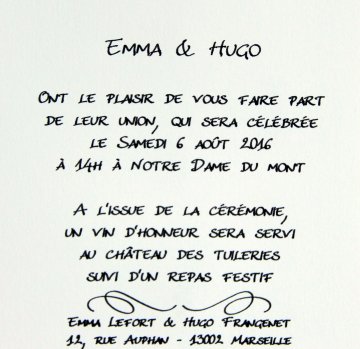 Emma & Hugo
Ont le plaisir de vous faire part
de leur union, qui sera célébrée
le Samedi 6 août 2016
à 14h à Notre Dame du mont
A l'issue de la cérémonie,
un vin d'honneur sera servi
au château des Tuileries
suivi d'un repas festif
Emma Lefort & Hugo Frangenet
12, rue Auphan - 13002 Marseille